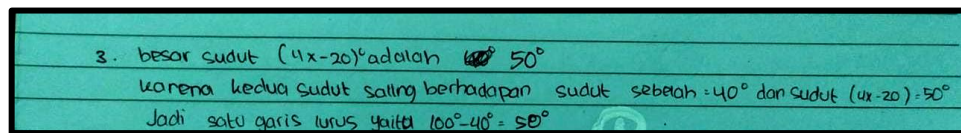 3. besar sudut (4x-20)° adalah 50°
karena kedua sudut saling berhadapan sudut sebelah = 40° dan sudut (4x-20) = 50°
Jadi satu garis lurus yaitu 100°-40° = 50°